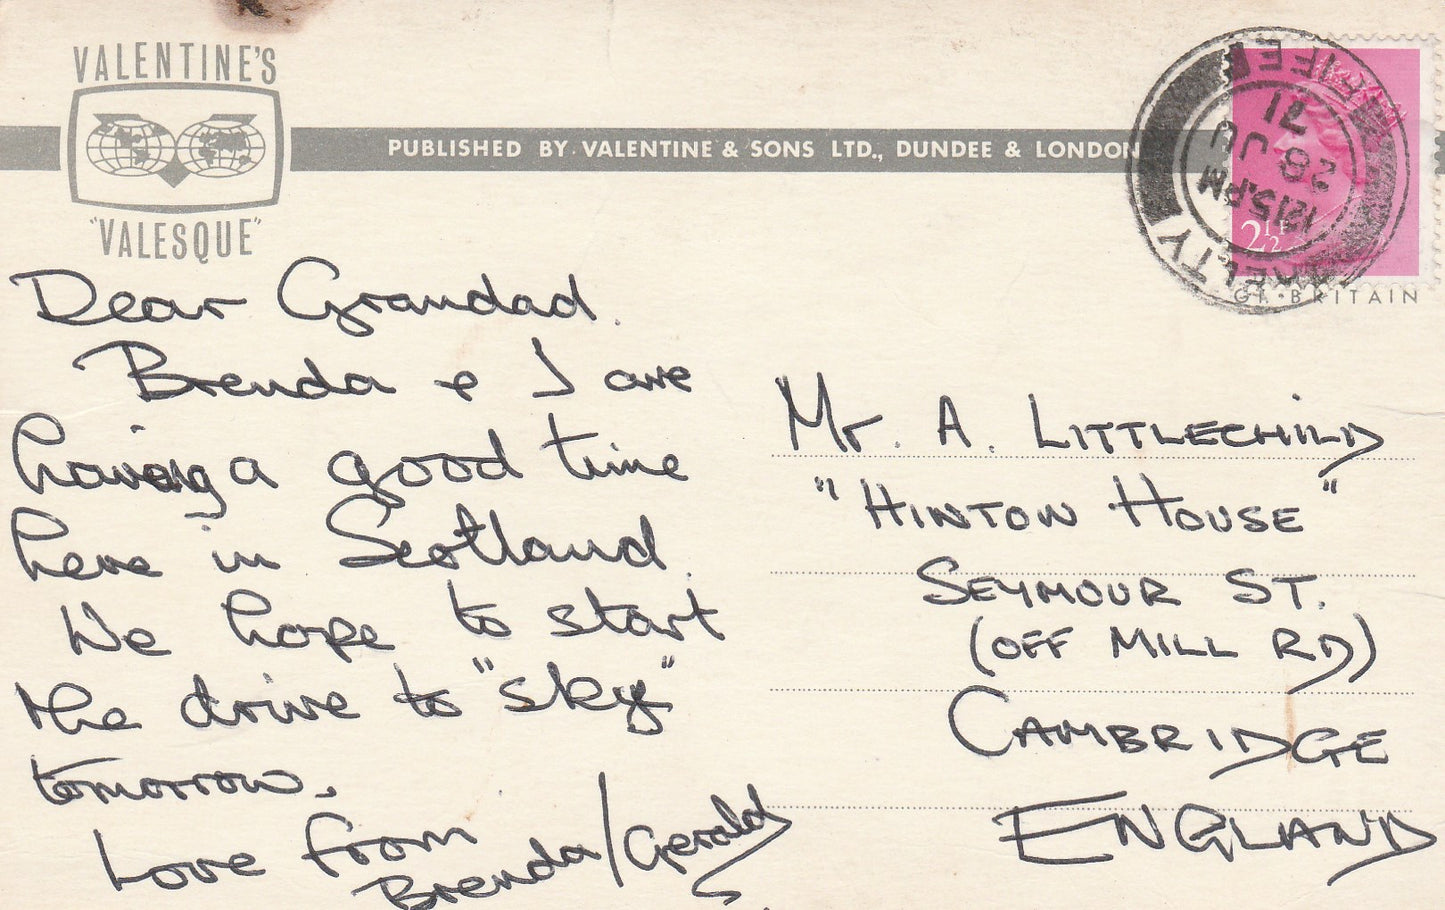 VALENTINE'S
"VALESQUE"
PUBLISHED BY VALENTINE & SONS LTD., DUNDEE & LONDON
KELTY
1215PM
28 JU
71
FIFE
2½
GT. BRITAIN
Dear Grandad.
Brenda & I are
having a good time
here in Scotland.
We hope to start
the drive to "sky"
tomorrow.
Love from
Brenda/Gerald
Mr. A. LITTLECHILD
"HINTON HOUSE"
SEYMOUR ST.
(OFF MILL RD)
CAMBRIDGE
ENGLAND